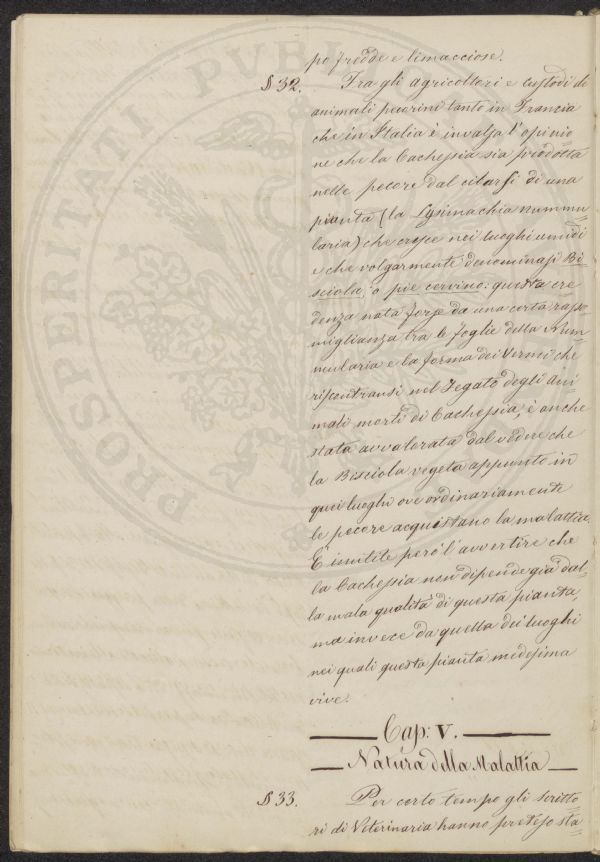 PROSPERITATI PVBL
po fredde e limacciose.
§ 32. Tra gli agricoltori e custodi di
animali pecorini tanto in Francia
che in Italia è invalsa l'opinio
ne che la Cachessia sia prodotta
nelle pecore dal cibarsi di una
pianta (la Lysimachia nummu=
laria) che cresce nei luoghi umidi
e che volgarmente denominasi Bi
sciola, o piè cervino: questa cre
denza nata forse da una certa rasso=
miglianza tra le foglie della Num=
mularia e la forma dei Vermi che
riscontransi nel Fegato degli Ani
mali morti di Cachessia, è anche
stata avvalorata dal vedere che
la Bisciola vegeta appunto in
quei luoghi ove ordinariamente
le pecore acquistano la malattia.
E' inutile però l'avvertire che
la Cachessia non dipende già dal=
la mala qualità di questa pianta,
ma invece da quella dei luoghi
nei quali questa pianta medesima
vive.
Cap: V.
Natura della Malattia
§ 33. Per certo tempo gli scritto=
ri di Veterinaria hanno preteso sta=